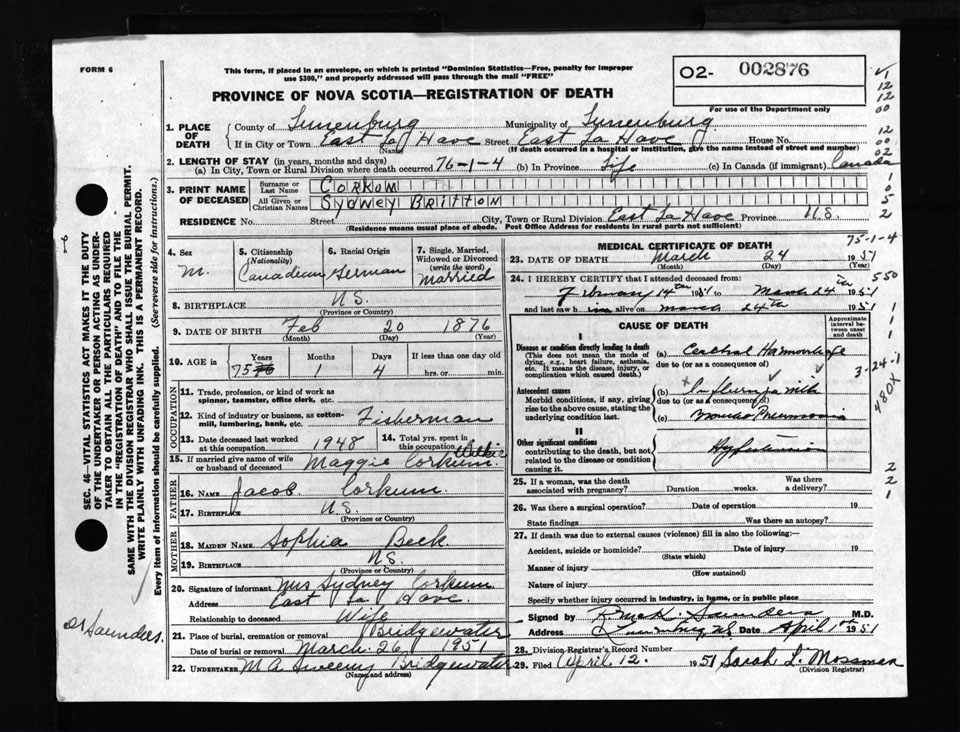 FORM 6
This form, if placed in an envelope, on which is printed "Dominion Statistics—Free, penalty for improper
use $300," and properly addressed will pass through the mail "FREE"
O2- 002876
For use of the Department only
PROVINCE OF NOVA SCOTIA—REGISTRATION OF DEATH
1. PLACE OF DEATH
County of Lunenburg Municipality of Lunenburg
If in City or Town East La Have Street East La Have House No.
(Name) (If death occurred in a hospital or institution, give the name instead of street and number)
2. LENGTH OF STAY (in years, months and days)
(a) In City, Town or Rural Division where death occurred 76-1-4 (b) In Province Life (c) In Canada (if immigrant) Canada
3. PRINT NAME OF DECEASED
Surname or Last Name CORKUM
All Given or Christian Names SYDNEY BRITTON
RESIDENCE No. Street City, Town or Rural Division East La Have Province N.S.
(Residence means usual place of abode. Post Office Address for residents in rural parts not sufficient)
4. Sex M.
5. Citizenship (Nationality) Canadian
6. Racial Origin German
7. Single, Married, Widowed or Divorced (write the word) Married
8. BIRTHPLACE N.S.
(Province or Country)
9. DATE OF BIRTH Feb 20 1876
(Month) (Day) (Year)
10. AGE in Years 75 Months 1 Days 4 If less than one day old
hrs. or min.
OCCUPATION
11. Trade, profession, or kind of work as
spinner, teamster, office clerk, etc.
12. Kind of industry or business, as cotton-
mill, lumbering, bank, etc. Fisherman
13. Date deceased last worked at this occupation 1948
14. Total yrs. spent in this occupation
15. If married give name of wife or husband of deceased Maggie Corkum.
FATHER
16. NAME Jacob Corkum.
17. BIRTHPLACE N.S.
(Province or Country)
MOTHER
18. MAIDEN NAME Sophia Beck.
19. BIRTHPLACE N.S.
(Province or Country)
20. Signature of informant Mrs Sydney Corkum
Address East La Have.
Relationship to deceased Wife
21. Place of burial, cremation or removal Bridgewater
Date of burial or removal March. 26, 1951
22. UNDERTAKER M A Sweeny Bridgewater
(Name and address)
MEDICAL CERTIFICATE OF DEATH
75-1-4
23. DATE OF DEATH March 24 1951
(Month) (Day) (Year)
24. I HEREBY CERTIFY that I attended deceased from:
February 14th 1951 to March 24th 1951
and last saw him alive on March 24th 1951
550
CAUSE OF DEATH
Approximate interval between onset and death
I
Disease or condition directly leading to death
(This does not mean the mode of
dying, e.g., heart failure, asthenia,
etc. It means the disease, injury, or
complication which caused death.)
(a) Cerebral Haemorrhage
due to (or as a consequence of)
Antecedent causes
Morbid conditions, if any, giving
rise to the above cause, stating the
underlying condition last.
(b) Influenza with
due to (or as a consequence of)
(c) Broncho Pneumonia
3-24-1
480X
II
Other significant conditions
contributing to the death, but not
related to the disease or condition
causing it.
Hypertension
25. If a woman, was the death associated with pregnancy? Duration weeks. Was there a delivery?
26. Was there a surgical operation? Date of operation 19
State findings Was there an autopsy?
27. If death was due to external causes (violence) fill in also the following:
Accident, suicide or homicide? Date of injury 19
(State which)
Manner of injury
(How sustained)
Nature of injury
Specify whether injury occurred in industry, in home, or in public place
Signed by Saunders M.D.
Address Lunenburg, N.S. Date April 1st 1951
28. Division Registrar's Record Number
29. Filed April 12. 1951 Sarah L. Mossman
(Division Registrar)
SEC. 46—VITAL STATISTICS ACT MAKES IT THE DUTY
OF THE UNDERTAKER OR PERSON ACTING AS UNDER-
TAKER TO OBTAIN ALL THE PARTICULARS REQUIRED
IN THE "REGISTRATION OF DEATH" AND TO FILE THE
SAME WITH THE DIVISION REGISTRAR WHO SHALL ISSUE THE BURIAL PERMIT.
WRITE PLAINLY WITH UNFADING INK. THIS IS A PERMANENT RECORD.
Every item of information should be carefully supplied. (See reverse side for instructions.)
Dr Saunders.
1
12
12
00
12
00
02
1
0
5
2
1
1
1
2
2
1